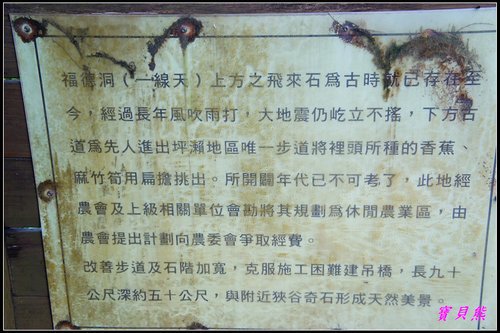 福德洞（一線天）上方之飛來石為古時就已存在至
今，經過長年風吹雨打，大地震仍屹立不搖，下方古
道為先人進出坪瀨地區唯一步道將裡頭所種的香蕉、
麻竹筍用扁擔挑出。所開闢年代已不可考了，此地經
農會及上級相關單位會勘將其規劃為休閒農業區，由
農會提出計劃向農委會爭取經費。
改善步道及石階加寬，克服施工困難建吊橋，長九十
公尺深約五十公尺，與附近狹谷奇石形成天然美景。
寶貝熊